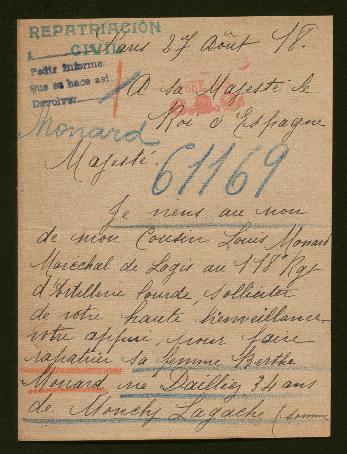 REPATRIACIÓN
CIVIL
Paris 27 Août 18.
Pedir informe
Que se hace así
Devolver
A sa Majesté le
Roi d'Espagne
Monard
Majesté.
61169
Je viens au nom
de mon Cousin Louis Monard
Maréchal de Logis au 118e Rgt
d'Artillerie lourde, solliciter
de votre haute bienveillance
votre appui, pour faire
rapatrier sa femme Berthe
Monard, née Dailliez, 34 ans
de Monchy Lagache (Somme